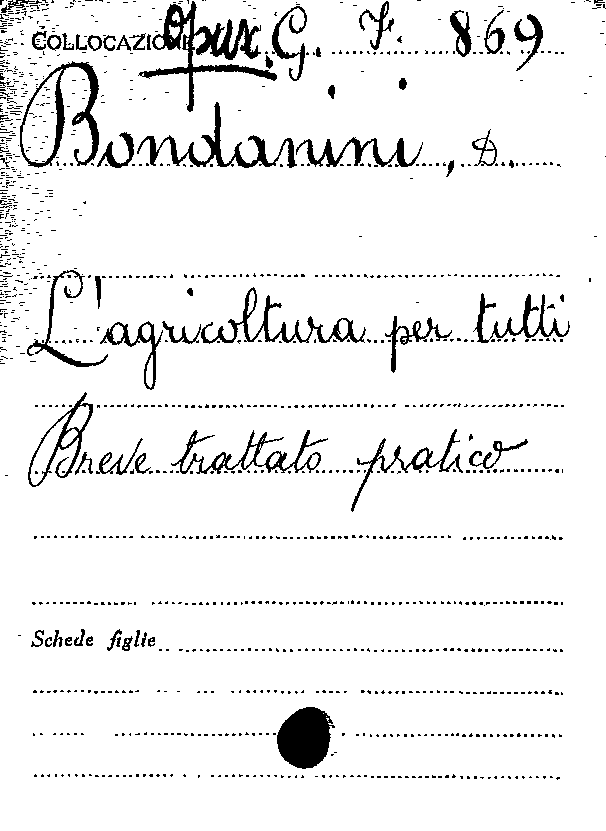 COLLOCAZIONE Opusc. G. F. 869
Bondanini, D.
L'agricoltura per tutti
Breve trattato pratico
Schede figlie